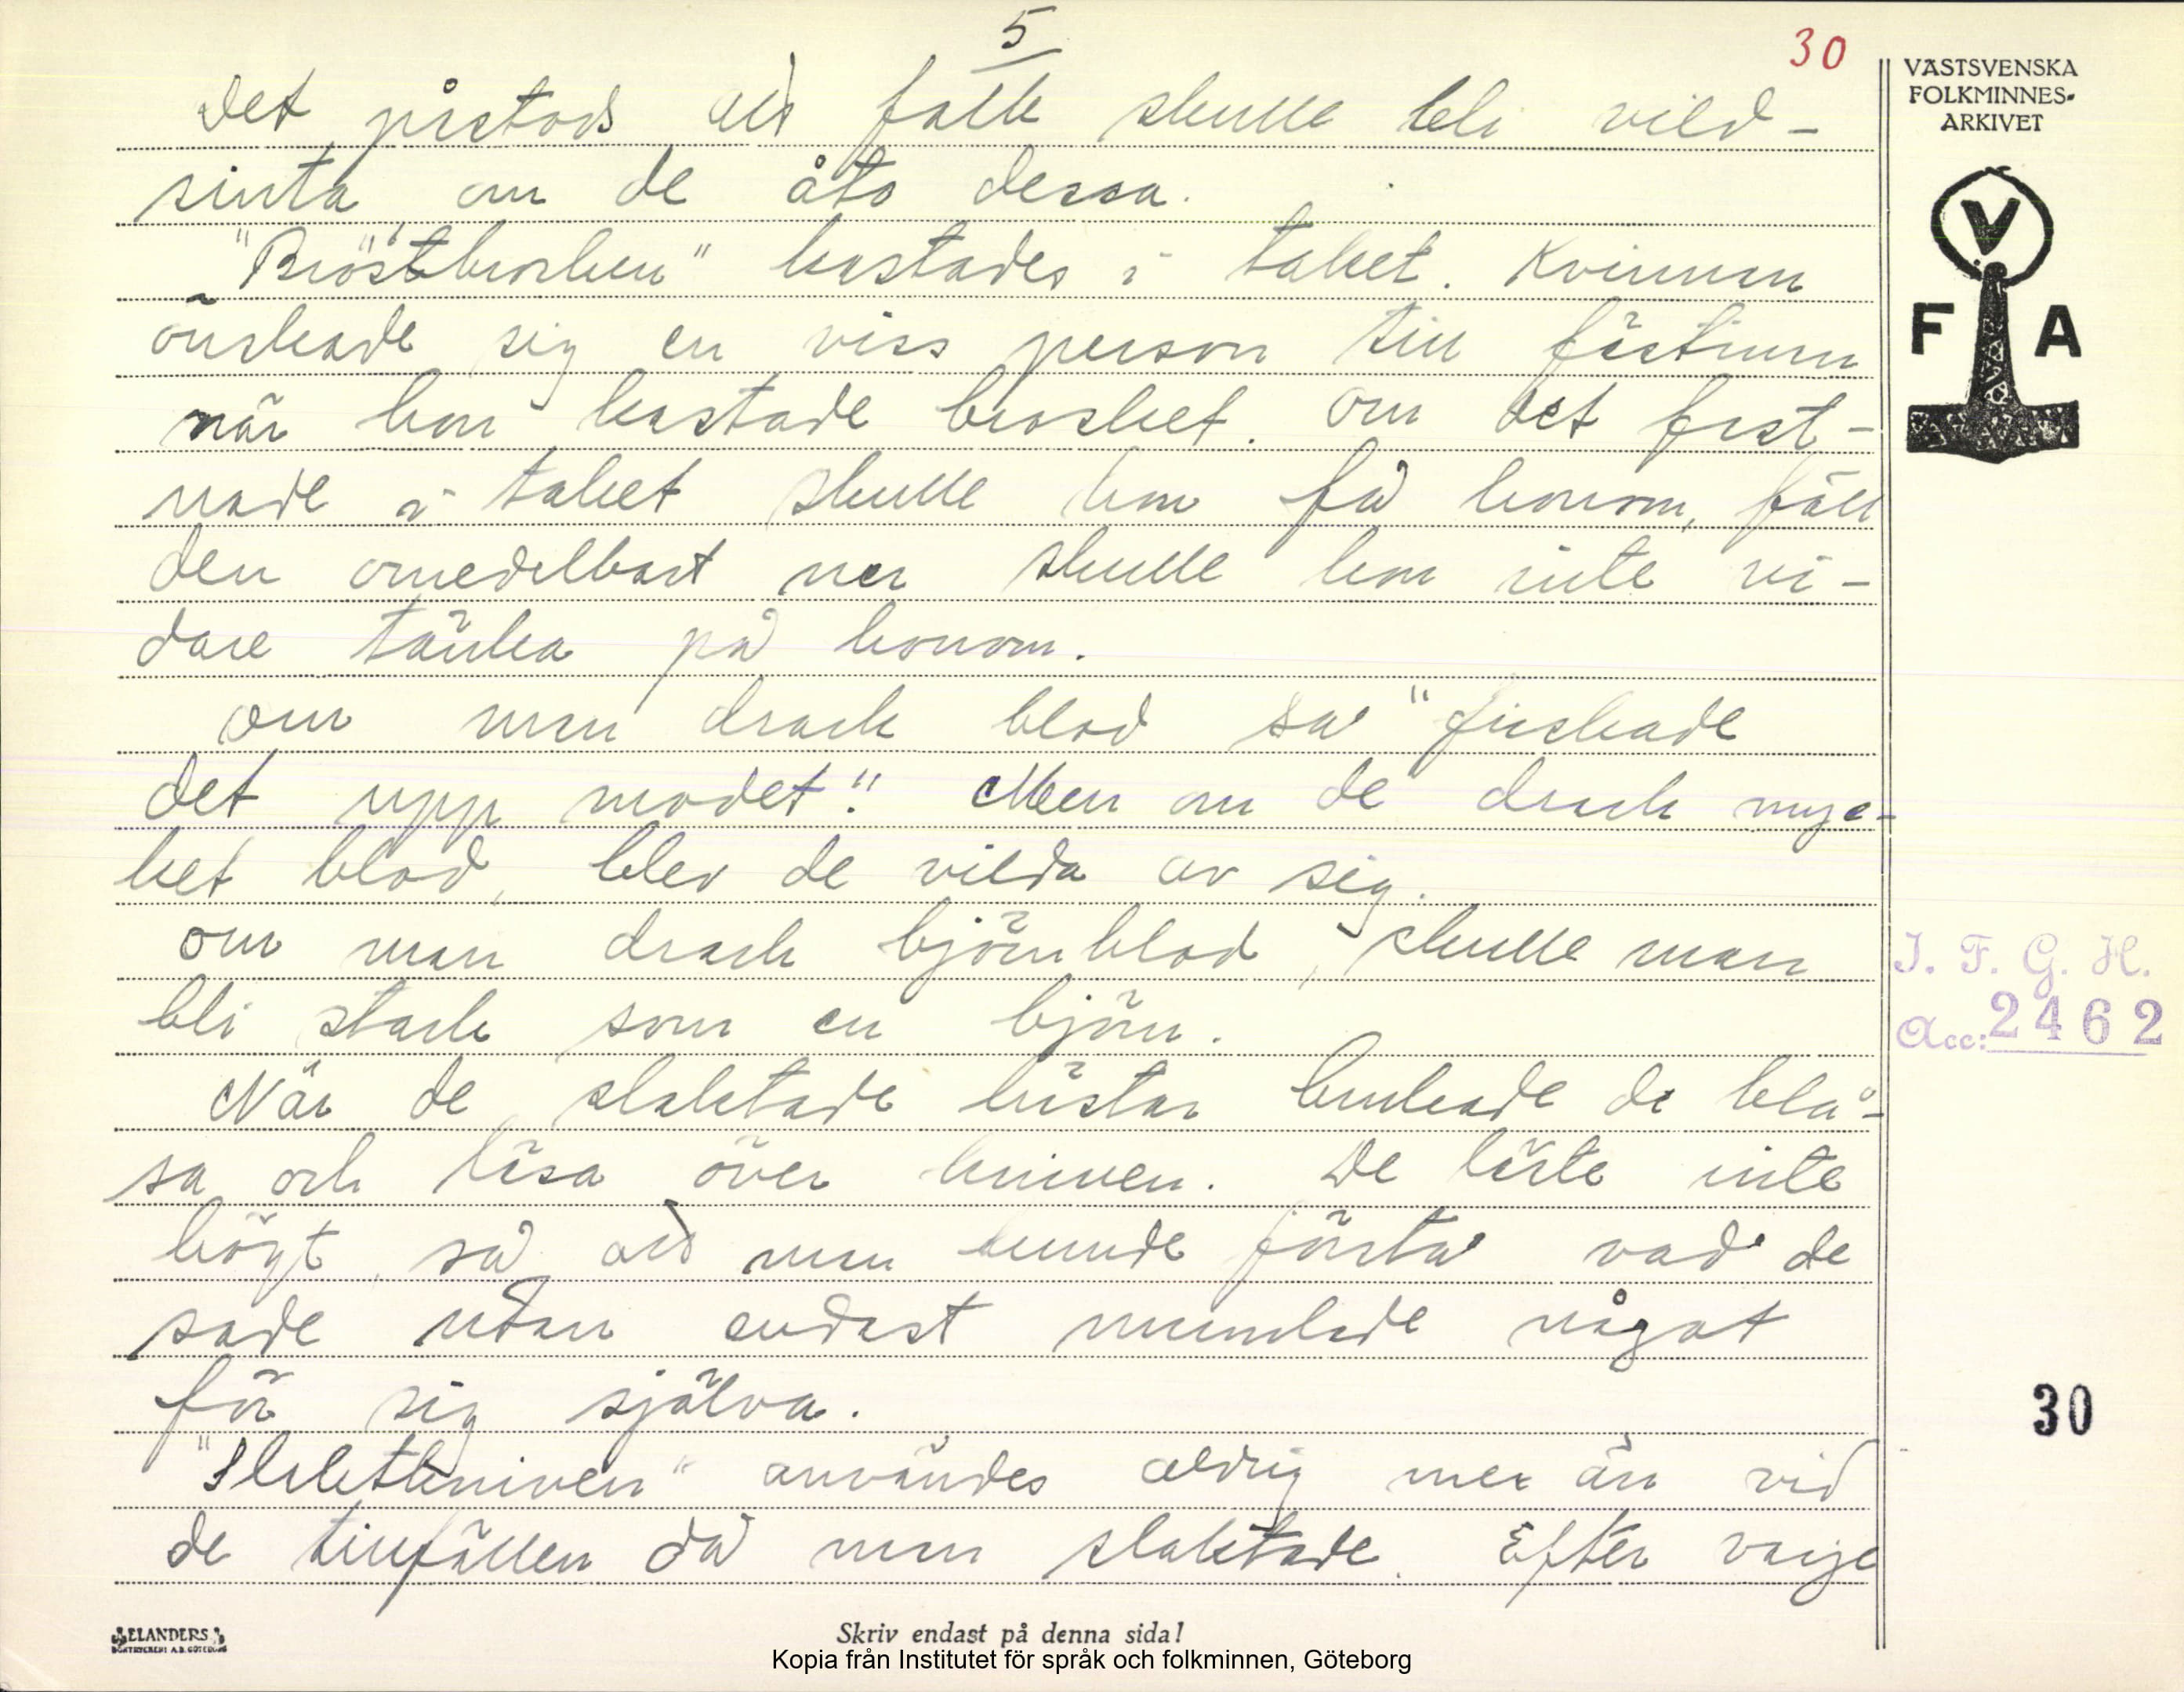 5
30
VÄSTSVENSKA
FOLKMINNES-
ARKIVET
V
F A
Det påstods att folk skulle bli vild-
sinta om de åto dessa.
"Bröstbrosken" kastades i taket. Kvinnan
önskade sig en viss person till fästman
när hon kastade brosket. Om det fast-
nade i taket skulle hon få honom, föll
den omedelbart ner skulle hon inte vi-
dare tänka på honom.
Om man drack blod så "friskade
det upp modet". Men om de drack myc-
ket blod, blev de vilda av sig.
Om man drack björnblod, skulle man
bli stark som en björn.
I. F. G. H.
Acc: 2462
När de slaktade hästar brukade de blå-
sa och läsa över kniven. De läste inte
högt, så att man kunde förstå vad de
sade utan endast mumlade något
för sig själva.
30
"Slaktkniven" användes aldrig mer än vid
de tillfällen då man slaktade. Efter varje
ELANDERS
BOKTRYCKERI A.B. GÖTEBORG
Skriv endast på denna sida!
Kopia från Institutet för språk och folkminnen, Göteborg